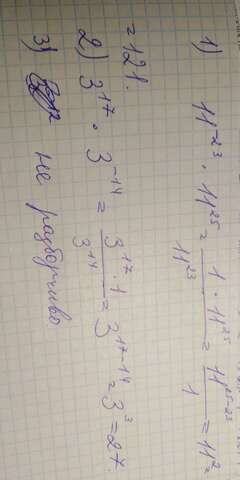 1) 11⁻²³ · 11²⁵ = 1 · 11²⁵ / 11²³ = 11²⁵⁻²³ / 1 = 11² =
= 121.
2) 3¹⁷ · 3⁻¹⁴ = 3¹⁷ · 1 / 3¹⁴ = 3¹⁷⁻¹⁴ = 3³ = 27.
3) не разборчиво